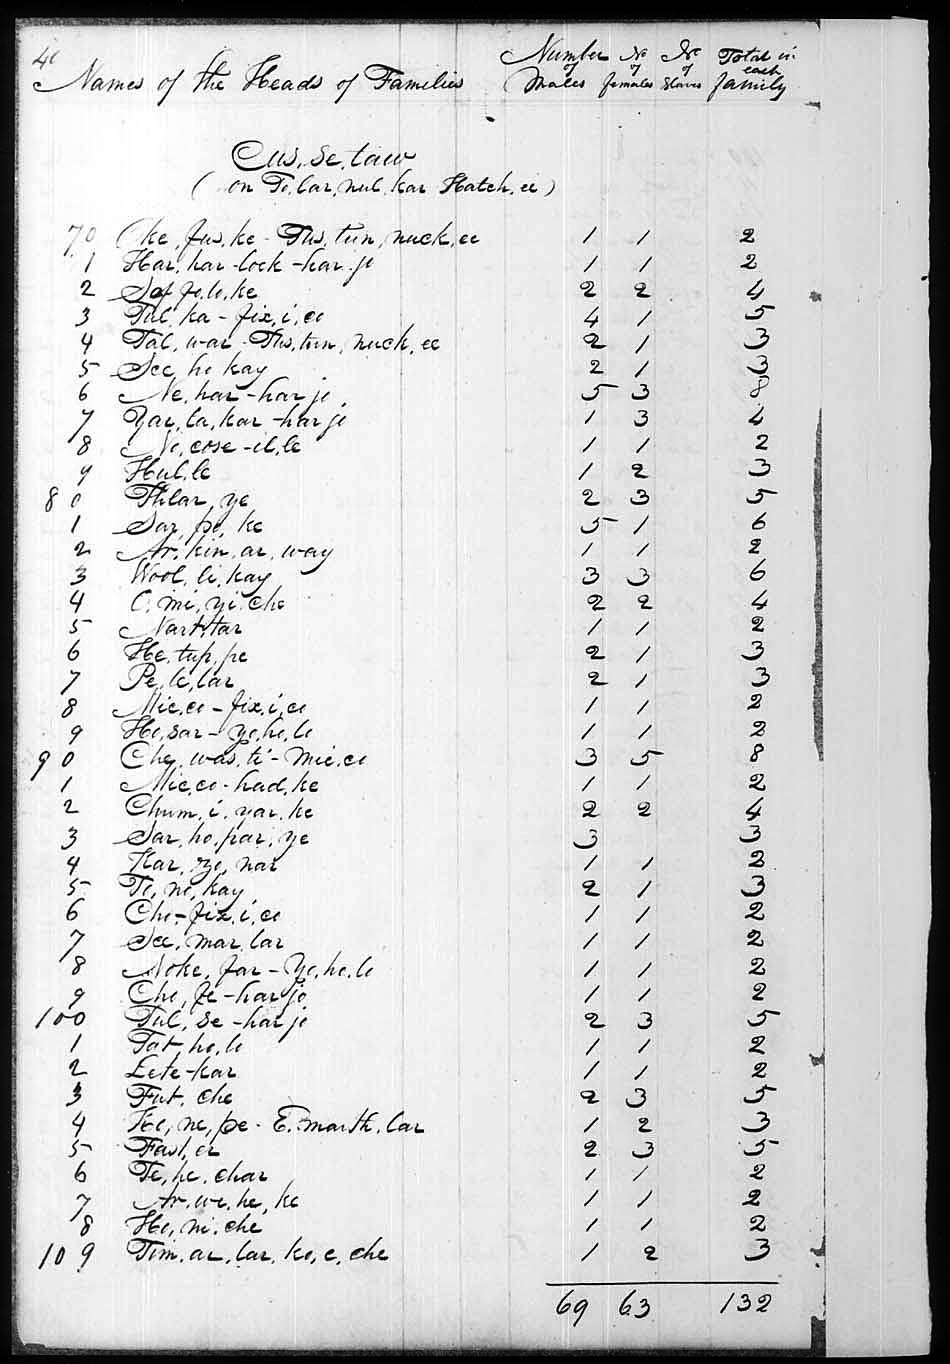 Number No No Total in
of of of each
Names of the Heads of Families Males females Slaves family
Cus, se, taw
(on To, lar, nul, kar Hatch, ee)
70 Oke, fus, ke - Tus, tun, nuck, ee 1 1 2
1 Har, har - lock - har, jo 1 1 2
2 fo, lo, ke 2 2 4
3 Tal, ka - fix, i, co 4 1 5
4 Tal, war - Tus, tun, nuck, ee 2 1 3
5 See, ho kay 2 1 3
6 Ne, har - har jo 5 3 8
7 Yar, la, kar - har jo 1 3 4
8 No, cose - il, le 1 1 2
9 Hul, le 1 2 3
80 Thlar, ye 2 3 5
1 Sar, po, ke 5 1 6
2 Ar, kin, ar, way 1 1 2
3 Wool, li, kay 3 3 6
4 O, mi, yi, che 2 2 4
5 Nart, tar 1 1 2
6 He, tup, pe 2 1 3
7 Pe, le, lar 2 1 3
8 Mic, co - fix, i, co 1 1 2
9 Ho, sar - yo, ho, lo 1 1 2
90 Che, was, ti - Mic, co 3 5 8
1 Mic, co - had, ke 1 1 2
2 Chum, i, yar, ke 2 2 4
3 Sar, ho, par, ye 3 3
4 Kar, nar 1 1 2
5 To, no, kay 2 1 3
6 Cho - fix, i, co 1 1 2
7 See, mar, lar 1 1 2
8 Noke, far - Yo, ho, lo 1 1 2
9 Cho, fe - har jo 1 1 2
100 Tul, se - har jo 2 3 5
1 Tat ho, lo 1 1 2
2 Lete - kar 1 1 2
3 Fut, che 2 3 5
4 Ko, ne, pe - E, marth, lar 1 2 3
5 2 3 5
6 Te, he, char 1 1 2
7 Ar, we, he, ke 1 1 2
8 Ho, ni, che 1 1 2
109 Tim, ar, lar, ko, e, che 1 2 3
69 63 132